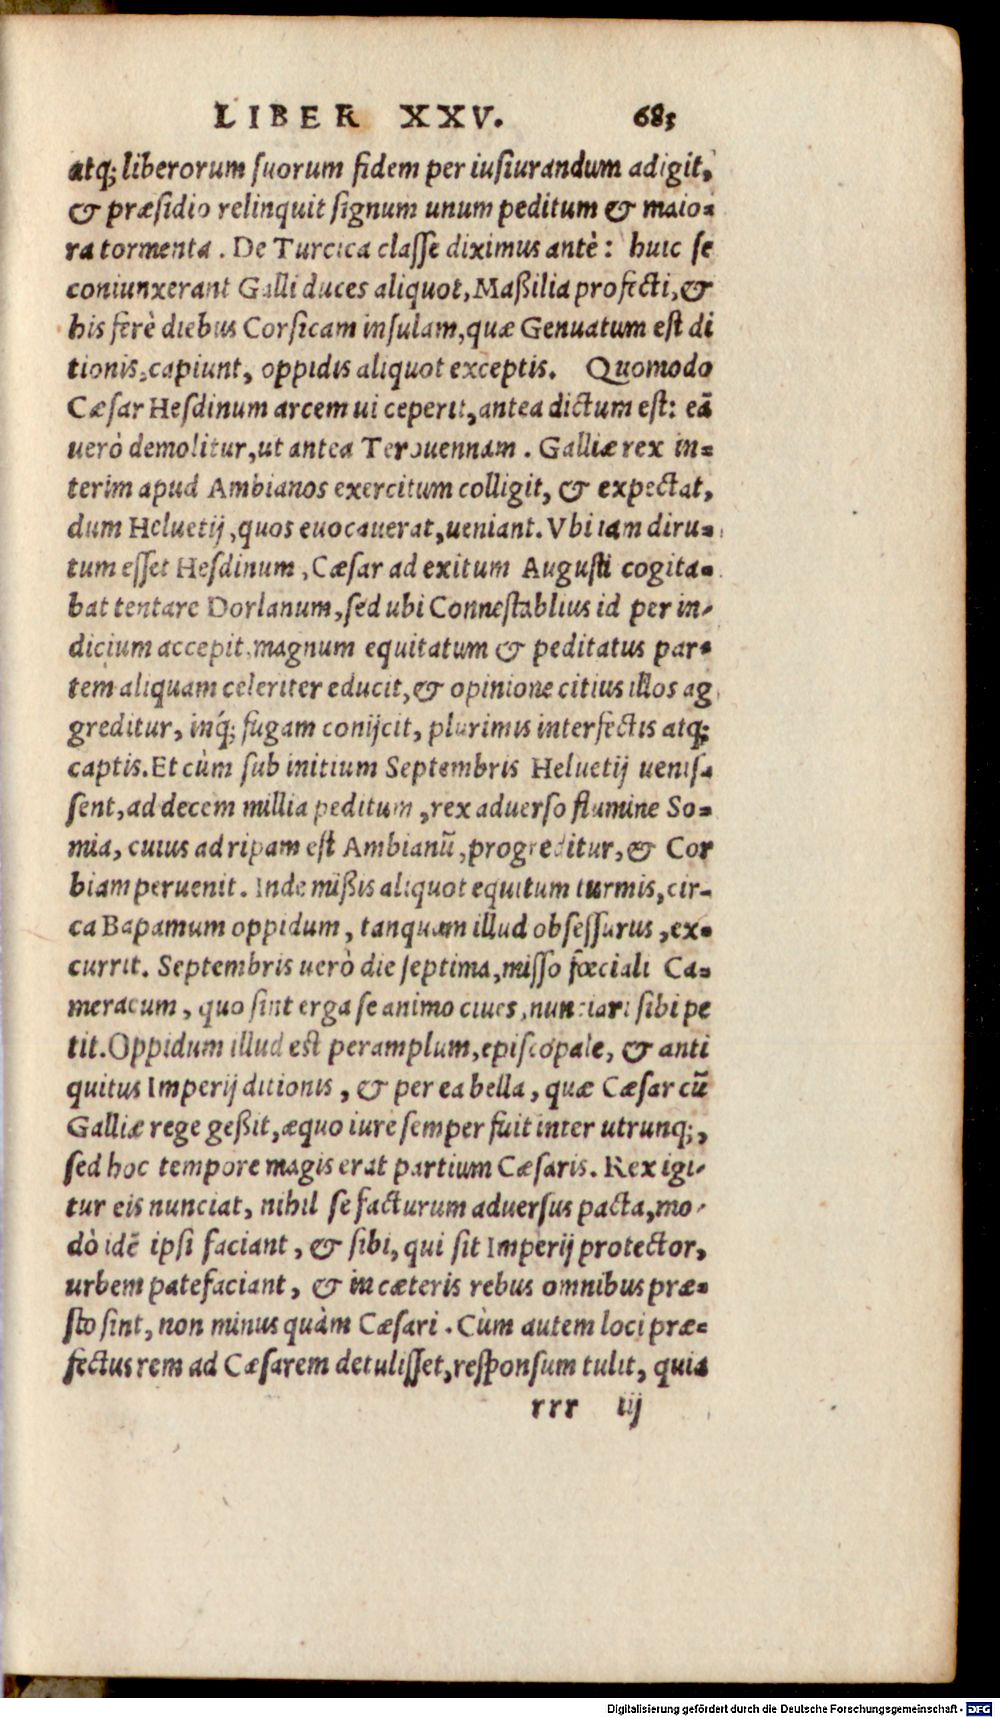 LIBER XXV. 683
atq; liberorum suorum fidem per iusiurandum adigit,
& præsidio relinquit signum unum peditum & maio-
ra tormenta. De Turcica classe diximus antè: huic se
coniunxerant Galli duces aliquot, Maßilia profecti, &
his ferè diebus Corsicam insulam, quæ Genuatum est di
tionis, capiunt, oppidis aliquot exceptis. Quomodo
Cæsar Hesdinum arcem ui ceperit, antea dictum est: eā
uerò demolitur, ut antea Terouennam. Galliæ rex in-
terim apud Ambianos exercitum colligit, & expectat,
dum Heluetij, quos euocauerat, ueniant. Vbi iam diru-
tum esset Hesdinum, Cæsar ad exitum Augusti cogita-
bat tentare Dorlanum, sed ubi Connestablius id per in-
dicium accepit, magnum equitatum & peditatus par-
tem aliquam celeriter educit, & opinione citius illos ag
greditur, inq́; fugam conijcit, plurimis interfectis atq;
captis. Et cùm sub initium Septembris Heluetij uenis-
sent, ad decem millia peditum, rex aduerso flumine So-
mia, cuius ad ripam est Ambianū, progreditur, & Cor
biam peruenit. Inde mißis aliquot equitum turmis, cir-
ca Bapamum oppidum, tanquam illud obsessurus, ex-
currit. Septembris uerò die septima, misso fœciali Ca-
meracum, quo sint erga se animo ciues, nunciari sibi pe
tit. Oppidum illud est peramplum, episcopale, & anti
quitus Imperij ditionis, & per ea bella, quæ Cæsar cū
Galliæ rege geßit, æquo iure semper fuit inter utrunq;,
sed hoc tempore magis erat partium Cæsaris. Rex igi-
tur eis nunciat, nihil se facturum aduersus pacta, mo-
dò idē ipsi faciant, & sibi, qui sit Imperij protector,
urbem patefaciant, & in cæteris rebus omnibus præ-
sto sint, non minus quàm Cæsari. Cùm autem loci præ-
fectus rem ad Cæsarem detulisset, responsum tulit, quia
rrr iij
Digitalisierung gefördert durch die Deutsche Forschungsgemeinschaft - DFG